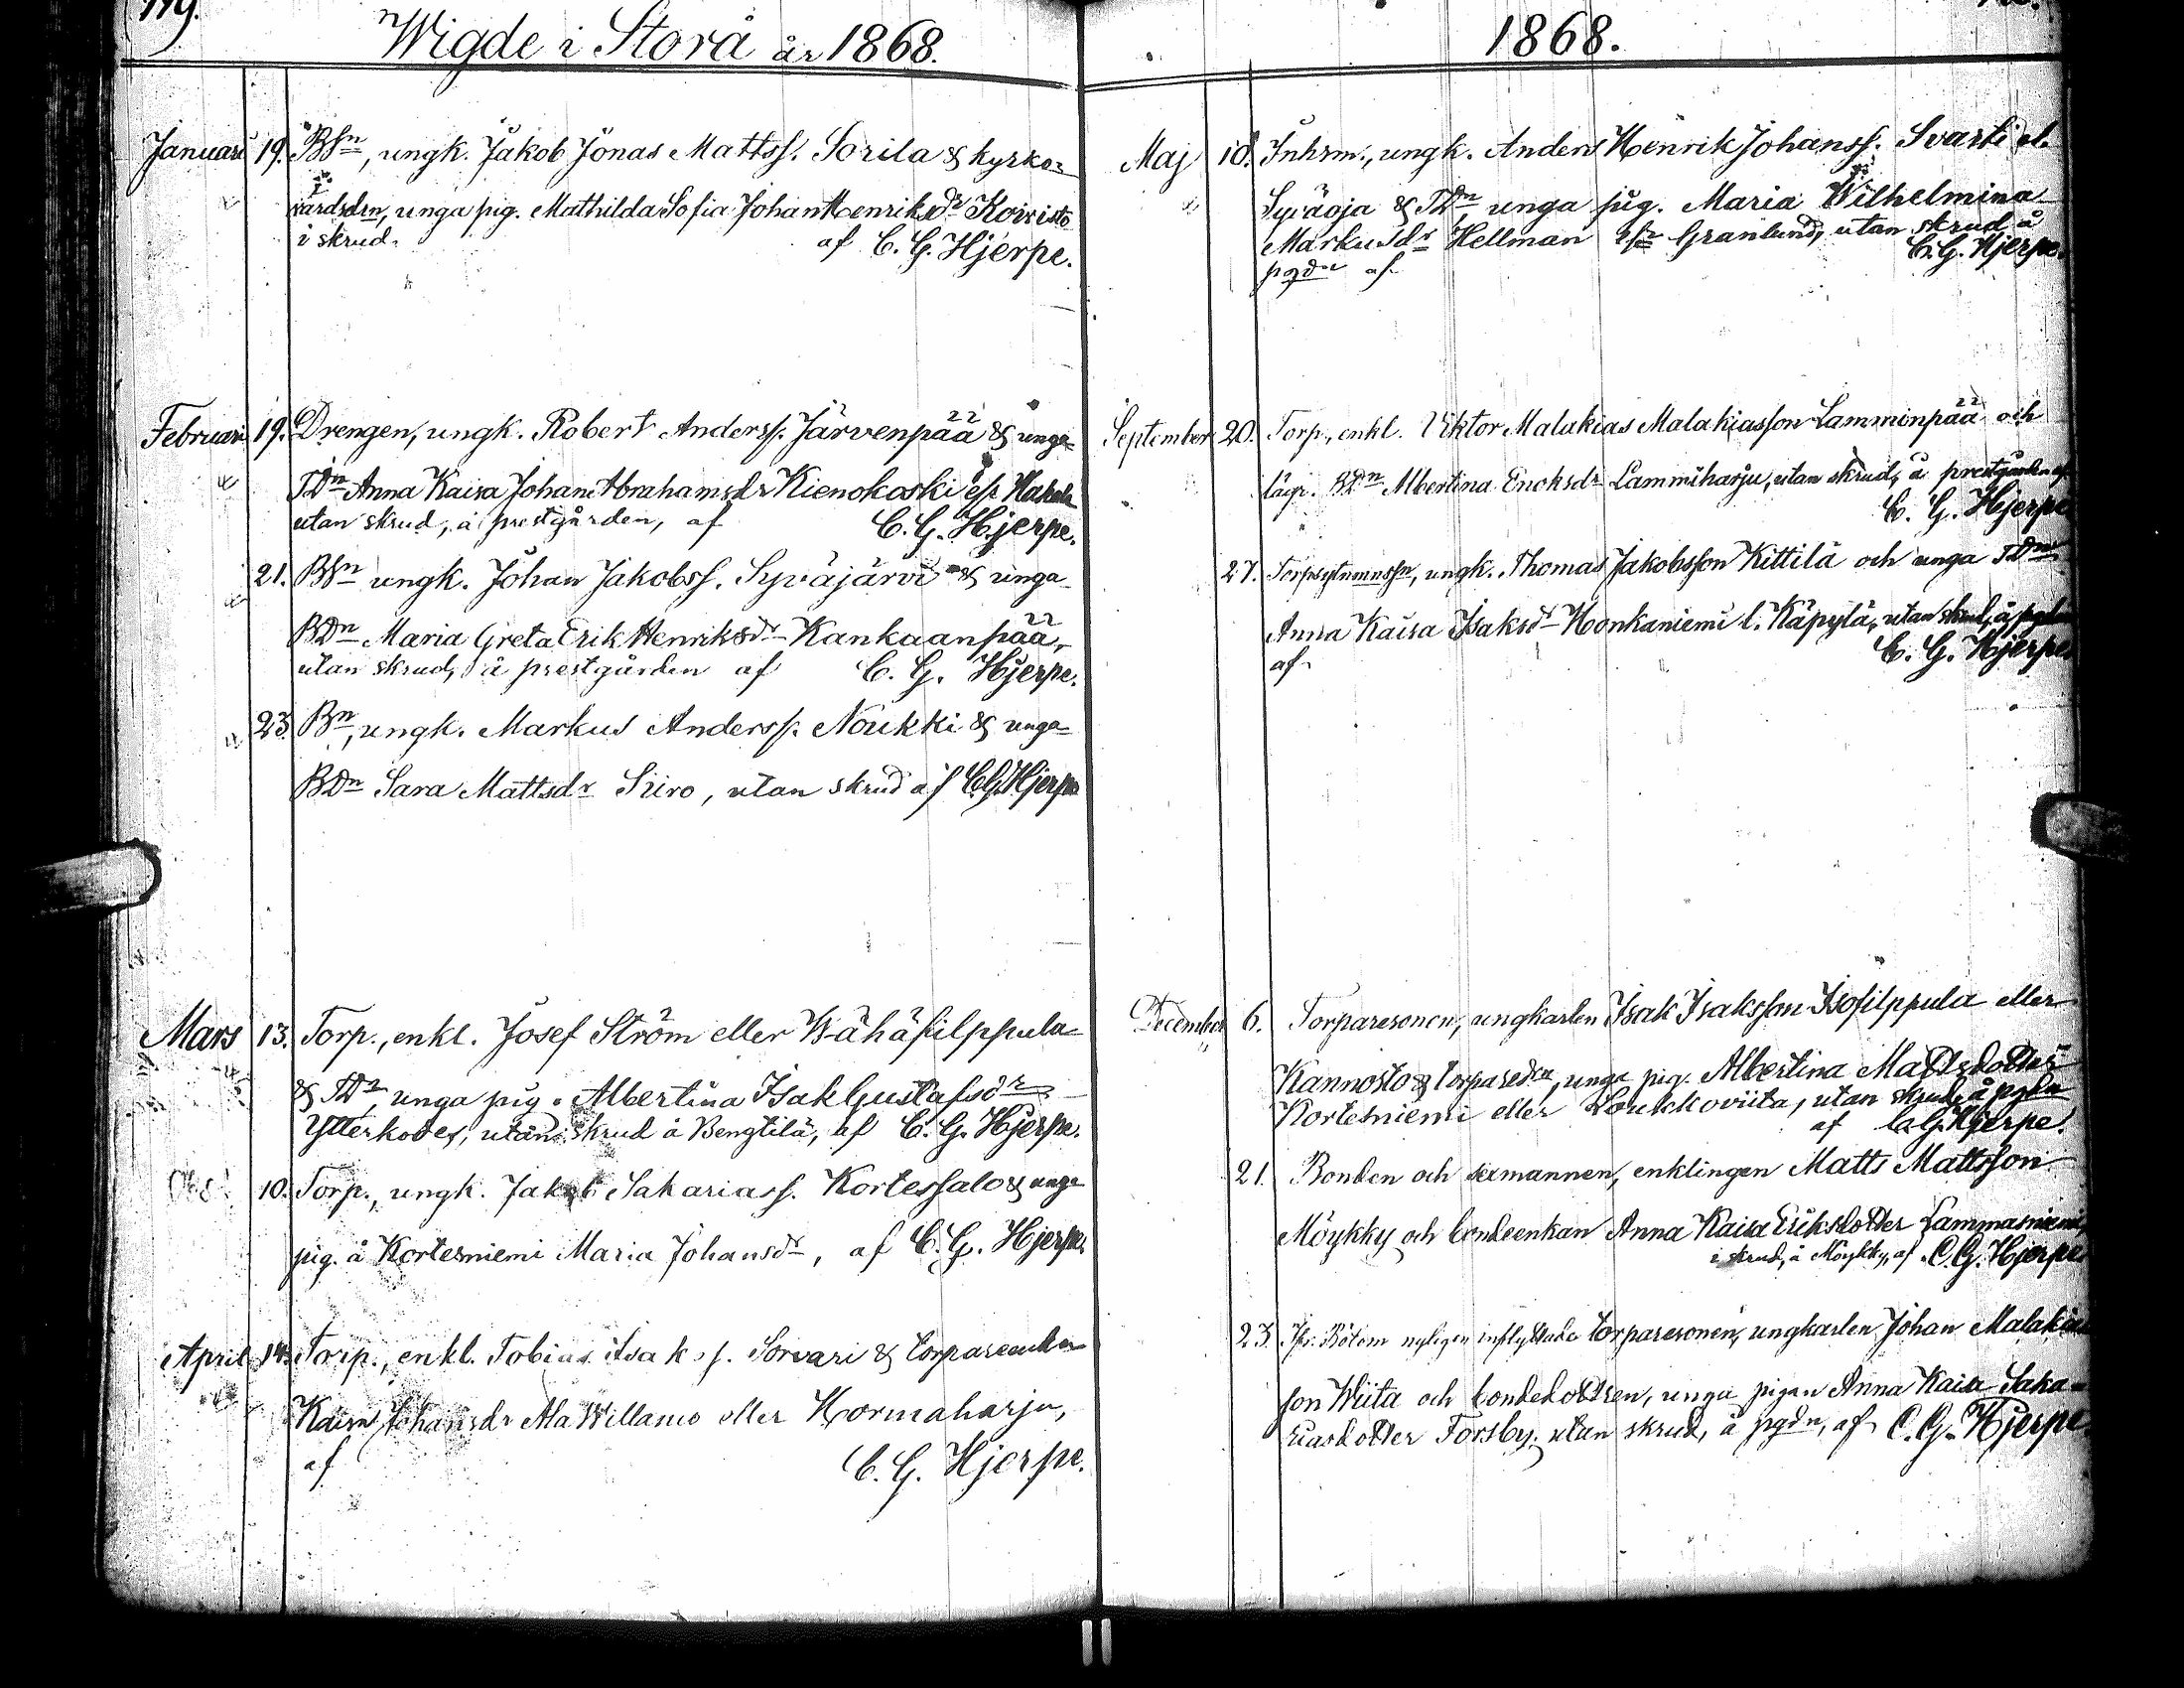 119.
Wigde i Storå år 1868.
Januari 19. BSn, ungk. Jakob Jonas Mattss. Sorila & kyrko-
värdsdrn, unga pig. Mathilda Sofia Johan Henriksdr Koivisto
i skrud. af C. G. Hjerpe.
Februari 19. Drengen, ungk. Robert Anderss. Järvenpää & unga
TDn Anna Kaisa Johan Abrahamsdr Kienokoski
utan skrud, å prestgården, af C. G. Hjerpe.
21. BSn ungk. Johan Jakobss. Syväjärvi & unga
BDn Maria Greta Erik Henriksdr Kankaanpää,
utan skrud, å prestgården af C. G. Hjerpe.
23. Bn, ungk. Markus Anderss. Noukki & unga
BDn Sara Mattsdr Siiro, utan skrud af C. G. Hjerpe
Mars 13. Torp., enkl. Josef Ström eller Wähäfilppula
& TDr, unga pig. Albertina Isak Gustafsdr
utan skrud å Bengtilä, af C. G. Hjerpe.
10. Torp., ungk. Jakob Sakariass. Kortessalo & unga
pig. å Kortesniemi Maria Johansdr, af C. G. Hjerpe.
April 14. Torp., enkl. Tobias Isakss. Sorvari & torpareenkan
Kaisa Johansdr Ala Willamo eller Hormaharju,
af C. G. Hjerpe.
1868.
Maj 18. Inhrm., ungk. Anders Henrik Johanss. Svarti el.
Syväoja & TDn unga pig. Maria Wilhelmina
Markusdr Hellman Granlund, utan skrud å
pgdn af C. G. Hjerpe.
September 20. Torp., enkl. Viktor Malakias Malakiasson Lamminpää och
BDn Albertina Enoksdr Lammiharju, utan skrud, å prestgården af
C. G. Hjerpe
27. ungk. Thomas Jakobsson Kittilä och unga TDn
Anna Kaisa Isaksdr Honkaniemi l. Käpylä, utan skrud, å pgdn
af C. G. Hjerpe.
December 6. Torparesonen, ungkarlen Isak Isaksson Isofilppula eller
Kannosto & torparedrn, unga pig. Albertina Mattsdotter
Kortesniemi eller Loukkoviita, utan skrud, å pgdn
af C. G. Hjerpe.
21. Bonden och sexmannen, enklingen Matts Mattsson
Möykky och bondeenkan Anna Kaisa Eriksdotter Lammasniemi,
i skrud, å Möykky, af C. G. Hjerpe
23. Fr. Bötom nyligen inflyttade torparesonen, ungkarlen Johan Malakias
son Wiita och bondedottren, unga pigan Anna Kaisa Saka-
riasdotter Forsby, utan skrud, å pgdn, af C. G. Hjerpe